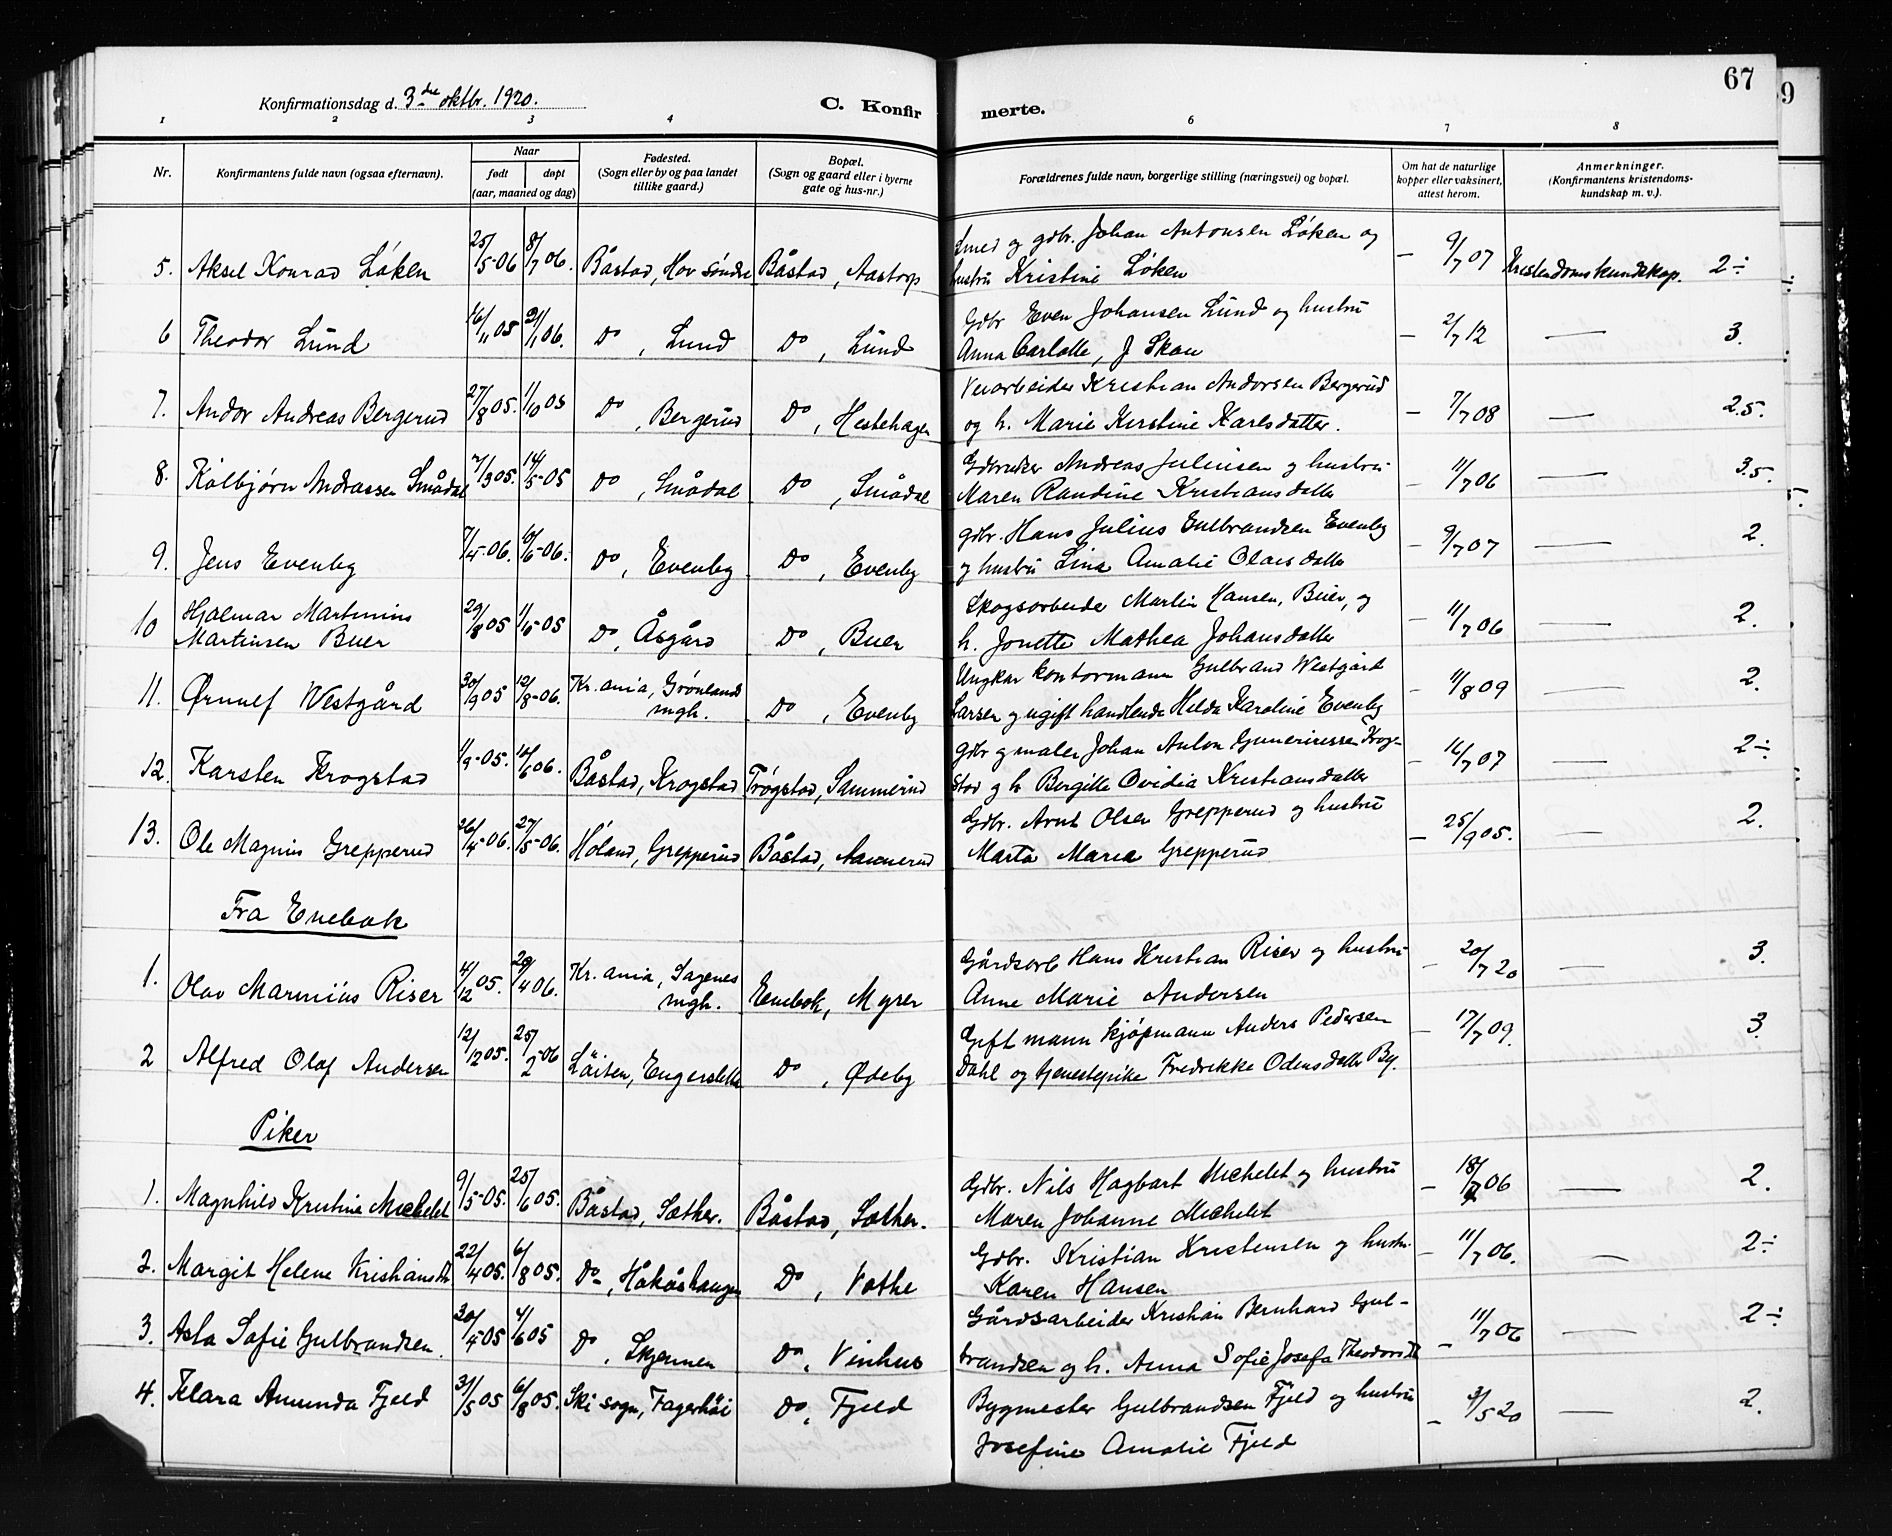 67
9
Konfirmationsdag d. 3dre oktbr. 1920.
C. Konfirmerte.
1 2 3 4 6 7 8
Nr.
Konfirmantens fulde navn (ogsaa efternavn).
Naar
født døpt
(aar, maaned og dag)
Fødested.
(Sogn eller by og paa landet
tillike gaard.)
Bopæl.
(Sogn og gaard eller i byerne
gate og hus-nr.)
Forældrenes fulde navn, borgerlige stilling (næringsvei) og bopæl.
Om hat de naturlige
kopper eller vaksinert,
attest herom.
Anmerkninger.
(Konfirmantens kristendoms-
kundskap m. v.)
5. Aksel Konrad Løken 25/5-06 8/7 06. Båstad, Hov søndre Båstad, Aastorp Smed og gdbr. Johan Antonsen Løken og — 9/7 07 Kristendomskundskap. 2÷
hustru Kristine Løken
6 Theodor Lund 16/11 05 21/1 06. Do, Lund Do, Lund Gdbr Even Johansen Lund og hustru — 2/7 12 — 3.
Anna Carlotte, f Skau
7. Andor Andreas Bergerud 27/8 05. 1/10 05 Do, Bergerud Do, Hestehagen Veiarbeider Kristian Andorsen Bergerud — 7/7 08 — 2.5.
og h. Marie Kirstine Karlsdatter.
8. Kolbjørn Andrassen Smådal 7/3 05. 14/5-05 Do, Smådal Do, Smådal Gdbruker Andreas Juliusen og hustru — 11/7 06 — 3.5.
Maren Randine Kristiansdatter
9. Jens Evenby 7/4-06. 10/6-06. Do, Evenby Do, Evenby gdbr. Hans Julius Gulbrandsen Evenby — 9/7 07 — 2.
og hustru Lina Amalie Olausdatter
10 Hjalmar Martinius 29/8 05 1/10-05 Do, Åsgård Do, Buer Skogsarbeider Martin Hansen, Buer, og — 11/7 06 — 2.
Martinsen Buer h. Jonette Mathea Johansdatter
11. Ørnulf Westgård 30/9 05 12/8-06. Kr.ania, Grønlands Do, Evenby Ungkar kontormann Gulbrand Westgård — 11/8 09 — 2.
mgh. Larsen og ugift handlende Hilda Karoline Evenby
12. Karsten Krogstad 1/9-05. 10/6 06. Båstad, Krogstad Trøgstad, Sammerud gdbr og maler Johan Anton Gunerinssen Krog- — 16/7 07 — 2÷
stad og h Bergitte Ovidia Kristiansdatter
13. Ole Magnus Grepperud 26/4-06. 27/5-06. Høland, Grepperud Båstad, Aamerud Gdbr. Arnt Olsen Grepperud og hustru — 25/9 05. — 2.
Marta Maria Grepperud
Fra Enebak
1. Olav Marinius Riser 4/12 05. 29/4 06. Kr.ania, Sagenes Enebak, Myrer Gårdsarb Hans Kristian Riser og hustru — 20/7 20 — 3.
mgh. Anne Marie Andersen
2 Alfred Olaf Andersen 12/12 05. 25/2-06 Løiten, Engersletta Do, Ødeby Gift mann kjøpmann Anders Pedersen — 17/7 09. — 3.
Dahl og tjenestepike Fredrikke Odensdatter By.
Piker
1. Magnhild Kristine Michelet 9/5-05. 25/6 05. Båstad, Sæther. Båstad, Sæther. Gdbr. Nils Hagbart Michelet og hustru — 18/7 06 — 2.
Maren Johanne Michelet
2. Margit Helene Kristiansdtr 22/4 05. 6/8 05. Do, Håkåshaugen Do, Vothe Gdbr. Kristian Kristensen og hustru — 11/7 06. — 2÷
Karen Hansen
3. Asta Sofie Gulbrandsen. 30/4 05 4/6 05 Do, Skjennen Do, Vinhus Gårdsarbeider Kristian Bernhard Gul- — 11/7 06 — 2÷
brandsen og h. Anna Sofie Josefa Theodorsdtr
4. Klara Amunda Fjeld 31/5 05 6/8 05. Ski sogn, Fagerhøi Do, Fjeld Bygmester Gulbrandsen Fjeld og hustru — 3/5 20 — 2.
Josefine Amalie Fjeld